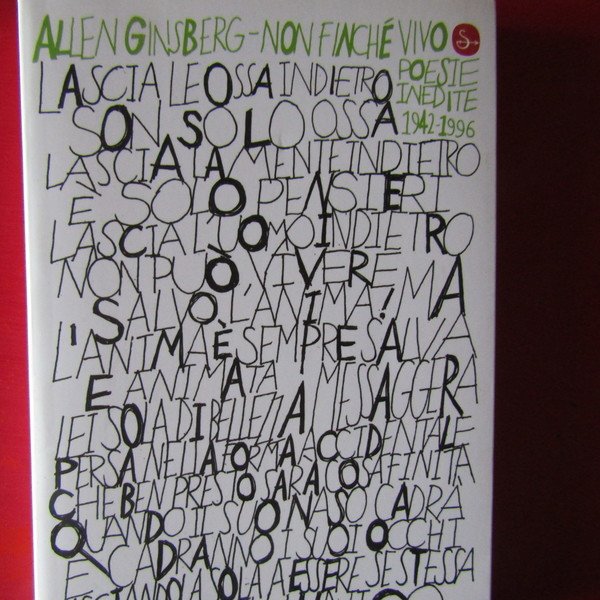 ALLEN GINSBERG - NON FINCHÉ VIVO
POESIE
INEDITE
1942-1996
LASCIA LE OSSA INDIETRO
SON SOLO OSSA
LASCIA LA MENTE INDIETRO
È SOLO PENSIERI
LASCIA L'UOMO INDIETRO
NON PUÒ VIVERE MA
SALVO L'ANIMA!
L'ANIMA È SEMPRE SALVA
E ANIMATA MESSAGGERA
LEI SOLA DI BELLEZZA
PERSA NELLA FORMA ACCIDENTALE
CHE BEN PRESTO A RACOSA FINITA
QUANDO IL SUO NASO CADRÀ
E CADRANNO I SUOI OCCHI
LASCIANDOLA SOLA A ESSERE SE STESSA